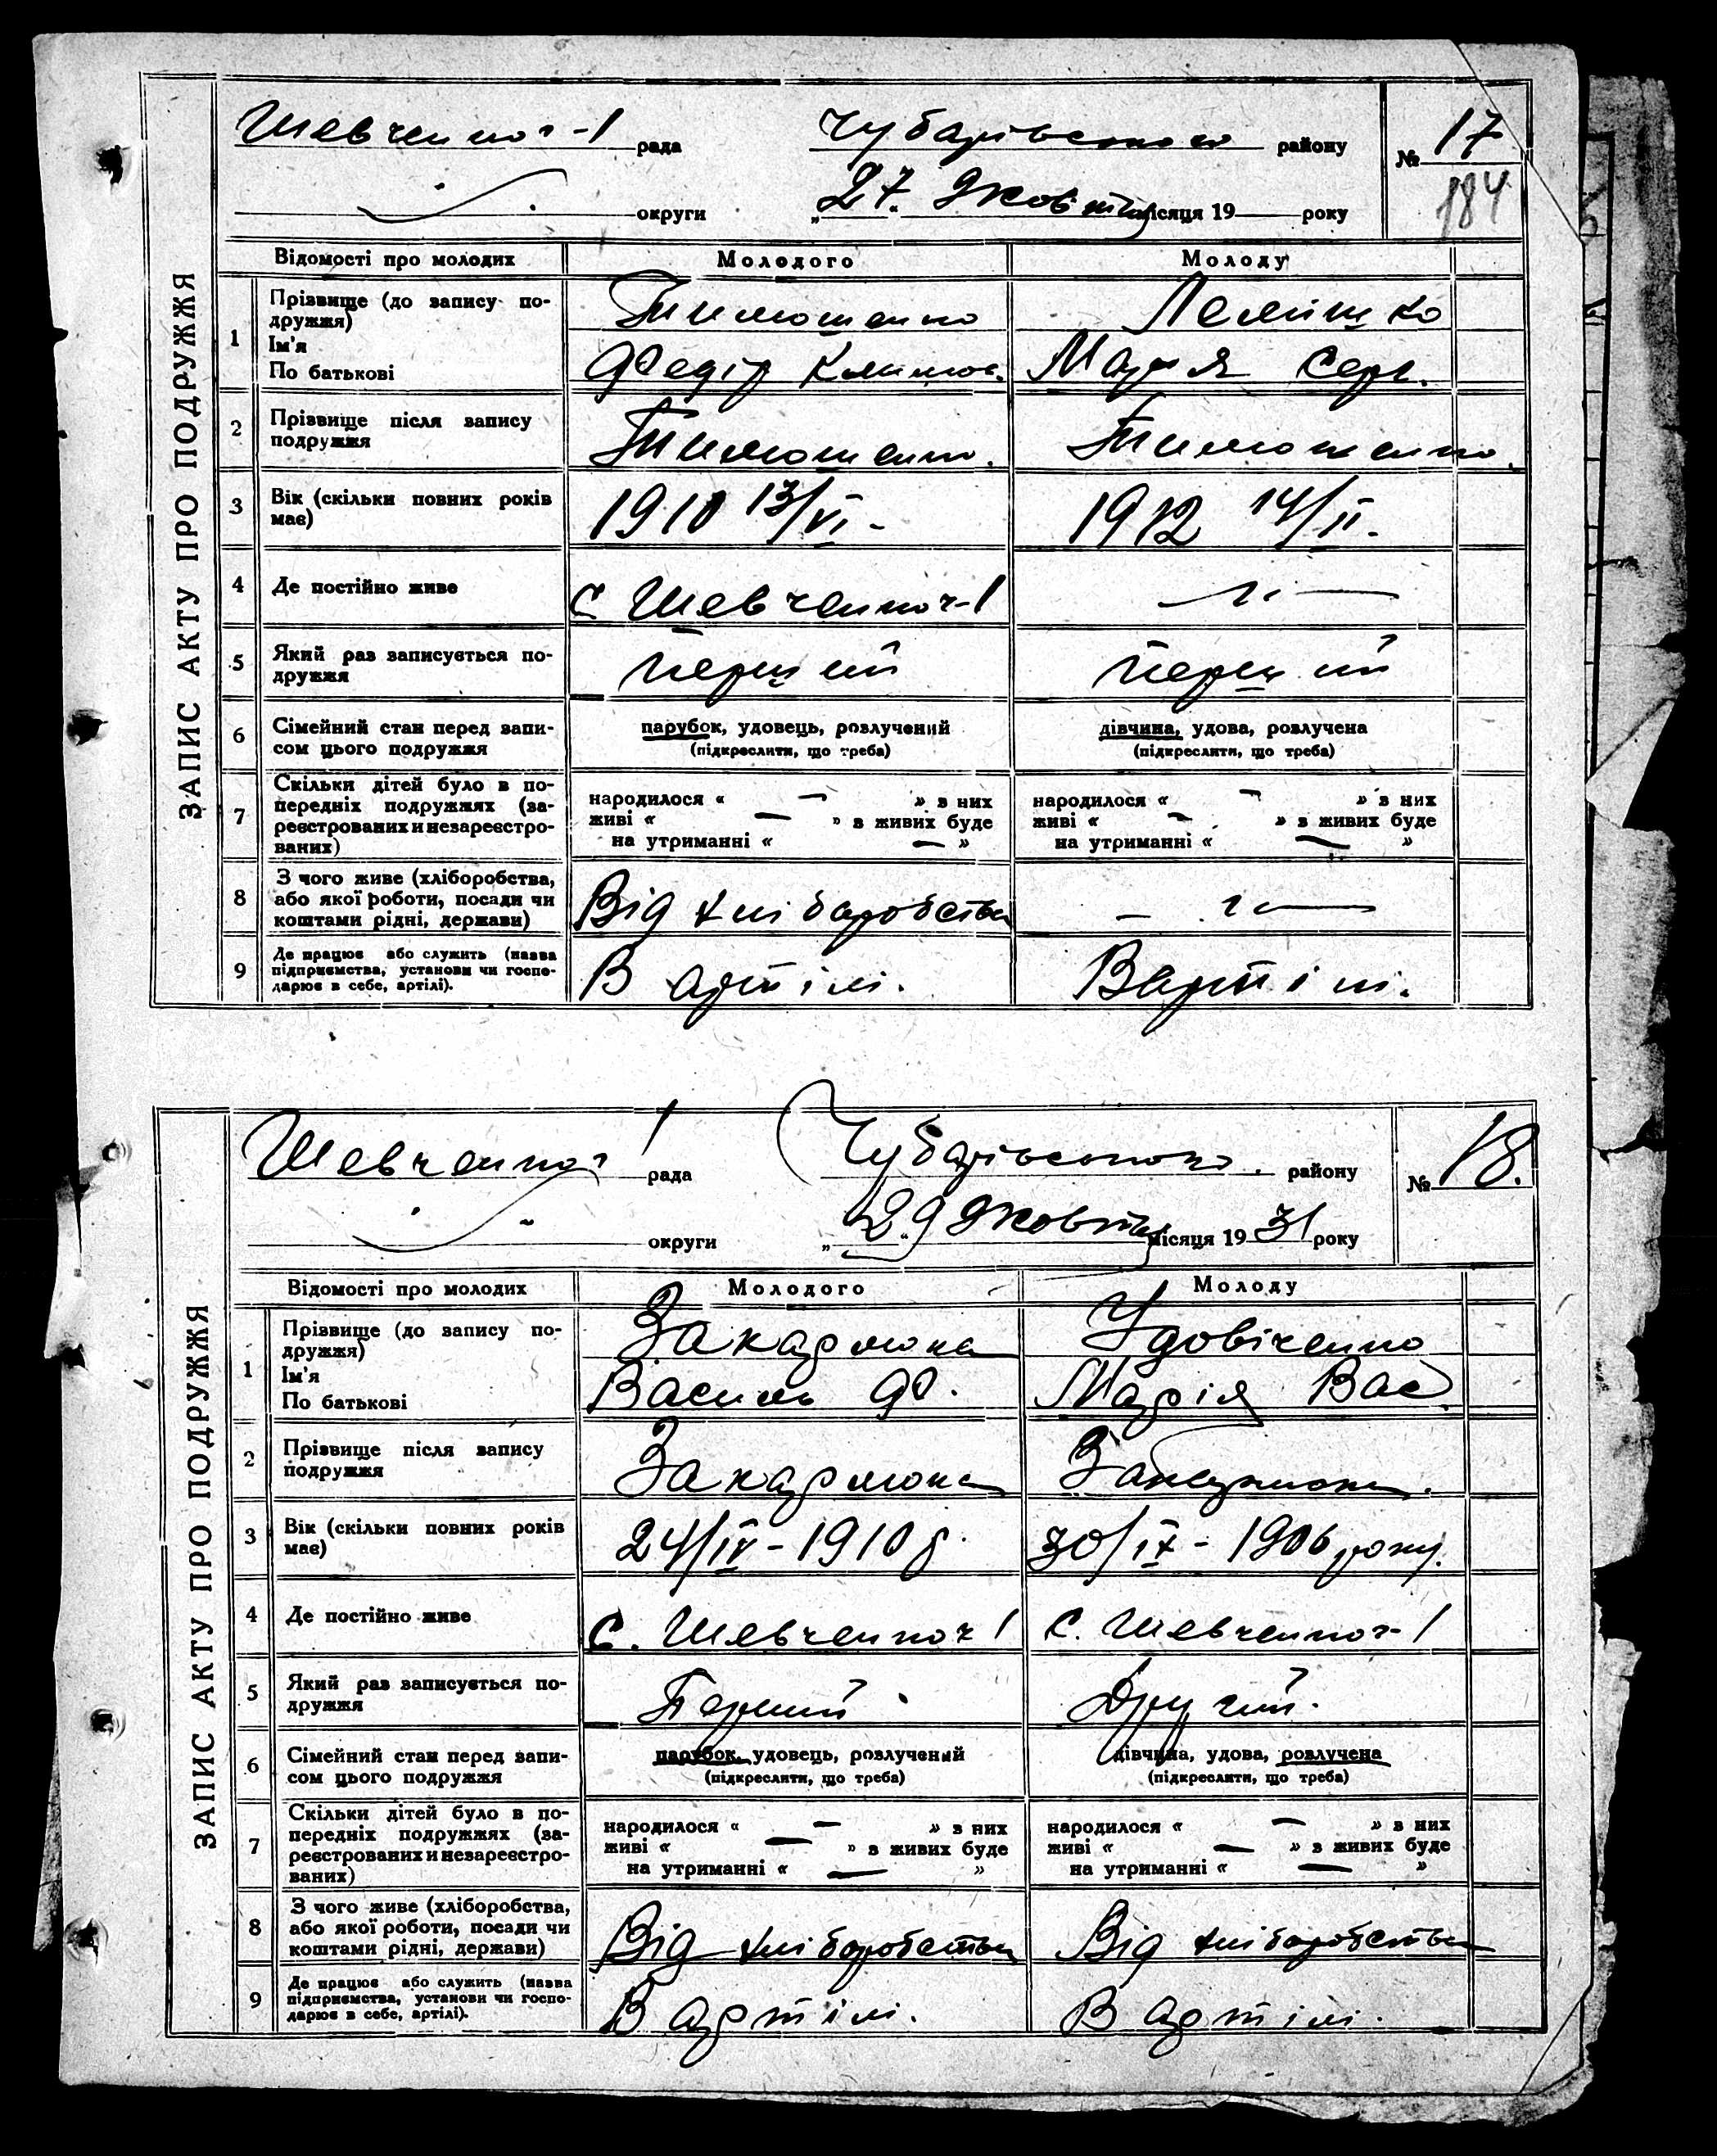 ЗАПИС АКТУ ПРО ПОДРУЖЖЯ
Шевченко-1 рада Чубарівського району № 17
184
округи „27“ Жовтня місяця 19 року
Відомості про молодих Молодого Молоду
1 Прізвище (до запису по-
дружжя) Тимошенко
Ім'я
По батькові Федір Климов. Марія Серг.
2 Прізвище після запису
подружжя Тимошенко. Тимошенко.
3 Вік (скільки повних років
має) 1910 13/VI - 1912 14/II -
4 Де постійно живе с Шевченко-1
5 Який раз записується по-
дружжя перший перший
6 Сімейний стан перед запи-
сом цього подружжя парубок, удовець, розлучений дівчина, удова, розлучена
(підкреслити, що треба) (підкреслити, що треба)
7 Скільки дітей було в по-
передніх подружжях (за-
реєстрованих и незареєстро-
ваних)
народилося « — » з них народилося « — » з них
живі « — » з живих буде живі « — » з живих буде
на утриманні « — » на утриманні « — »
8 З чого живе (хліборобства,
або якої роботи, посади чи
коштами рідні, держави) Від хліборобства
9 Де працює або служить (назва
підприємства, установи чи госпо-
дарює в себе, артілі). В артілі. В артілі.
ЗАПИС АКТУ ПРО ПОДРУЖЖЯ
Шевченко 1 рада Чубарівського. району № 18.
округи „29“ Жовтня місяця 1931 року
Відомості про молодих Молодого Молоду
1 Прізвище (до запису по-
дружжя) Закарлюка Удовіченко
Ім'я
По батькові Василь Ф. Марія Вас
2 Прізвище після запису
подружжя Закарлюка Закарлюка.
3 Вік (скільки повних років
має) 24/IV - 1910 р. 30/IX - 1906 року.
4 Де постійно живе с. Шевченко 1 с. Шевченко-1
5 Який раз записується по-
дружжя Перший Другий.
6 Сімейний стан перед запи-
сом цього подружжя парубок, удовець, розлучений дівчина, удова, розлучена
(підкреслити, що треба) (підкреслити, що треба)
7 Скільки дітей було в по-
передніх подружжях (за-
реєстрованих и незареєстро-
ваних)
народилося « — » з них народилося « — » з них
живі « — » з живих буде живі « — » з живих буде
на утриманні « — » на утриманні « — »
8 З чого живе (хліборобства,
або якої роботи, посади чи
коштами рідні, держави) Від хліборобства Від хліборобства
9 Де працює або служить (назва
підприємства, установи чи госпо-
дарює в себе, артілі). В артілі. В артілі.